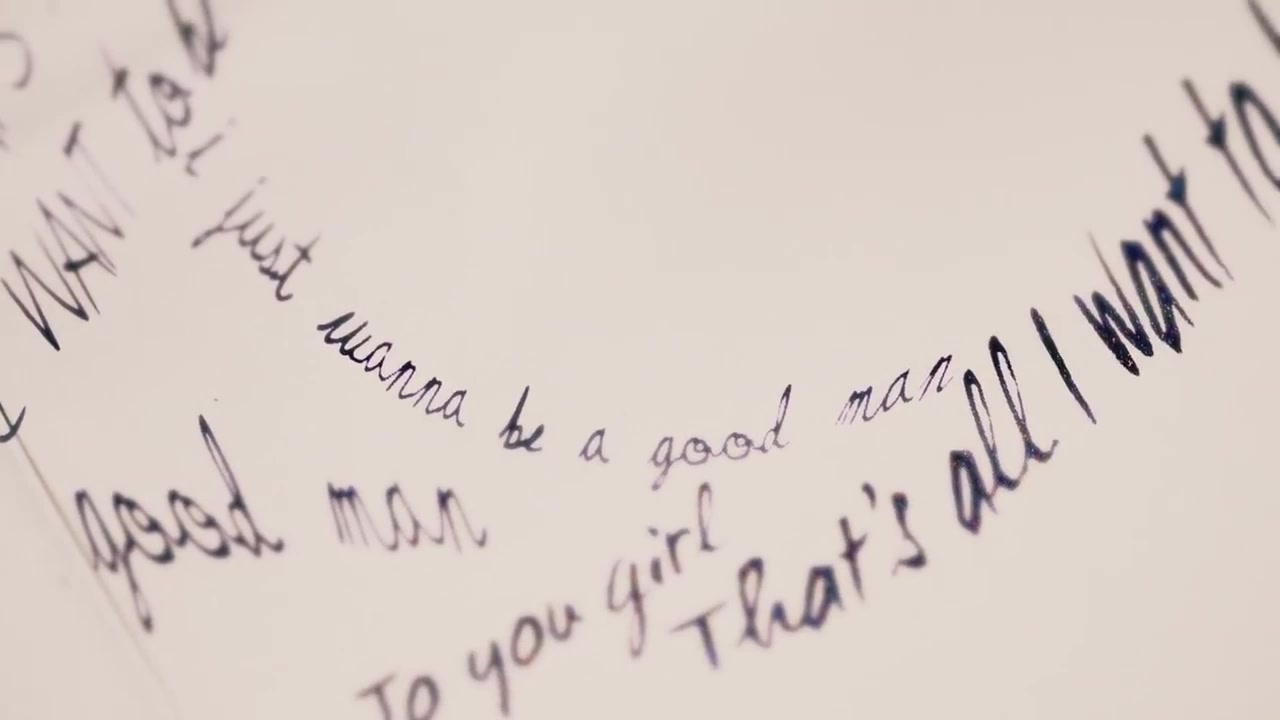 WANT to
i just wanna be a good man
good man
To you girl
That's all I want to